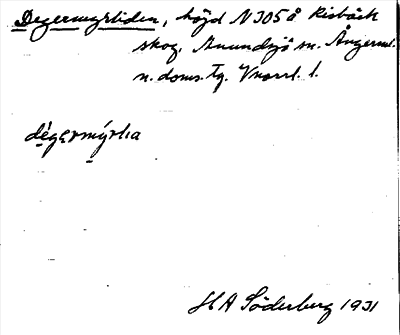 Degermyrliden, höjd N 305 å Risbäck
skog, Anundsjö sn. Ångerml.
n. doms. Tg. Vnorrl. l.
dégarmýrlia
H A Söderberg 1931